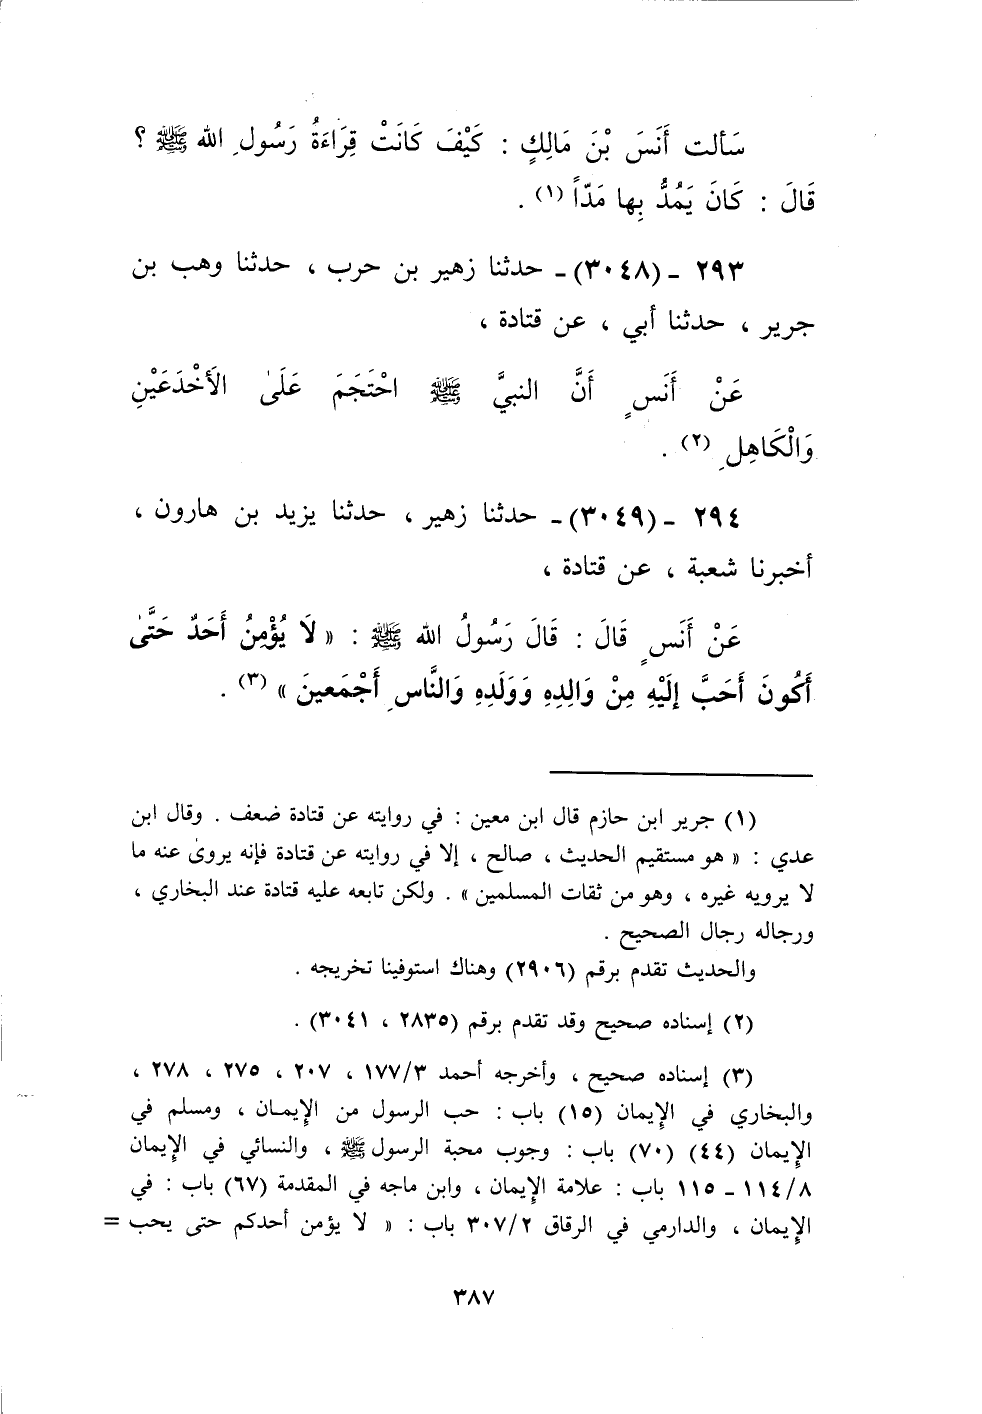 سَألت أَنَسَ بْنَ مَالِكٍ : كَيْفَ كَانَتْ قِرَاءَةُ رَسُولِ الله ﷺ ؟
قَالَ : كَانَ يَمُدُّ بِها مَدّاً (١) .
٢٩٣ ـ (٣٠٤٨)ـ حدثنا زهير بن حرب ، حدثنا وهب بن
جرير ، حدثنا أبي ، عن قتادة ،
عَنْ أَنَسٍ أَنَّ النبيَّ ﷺ احْتَجَمَ عَلَىٰ الأَخْدَعَيْنِ
وَالْكَاهِلِ (٢) .
٢٩٤ ـ (٣٠٤٩)ـ حدثنا زهير ، حدثنا يزيد بن هارون ،
أخبرنا شعبة ، عن قتادة ،
عَنْ أَنَسٍ قَالَ : قَالَ رَسُولُ الله ﷺ : « لَا يُؤْمِنُ أَحَدٌ حَتَّىٰ
أَكُونَ أَحَبَّ إلَيْهِ مِنْ وَالِدِهِ وَوَلَدِهِ وَالنَّاسِ أَجْمَعينَ » (٣) .
(١) جرير ابن حازم قال ابن معين : في روايته عن قتادة ضعف . وقال ابن
عدي : « هو مستقيم الحديث ، صالح ، إلا في روايته عن قتادة فإنه يروىٰ عنه ما
لا يرويه غيره ، وهو من ثقات المسلمين » . ولكن تابعه عليه قتادة عند البخاري ،
ورجاله رجال الصحيح .
والحديث تقدم برقم (٢٩٠٦) وهناك استوفينا تخريجه .
(٢) إسناده صحيح وقد تقدم برقم (٢٨٣٥ ، ٣٠٤١) .
(٣) إسناده صحيح ، وأخرجه أحمد ١٧٧/٣ ، ٢٠٧ ، ٢٧٥ ، ٢٧٨ ،
والبخاري في الإِيمان (١٥) باب : حب الرسول من الإِيمـان ، ومسلم في
الإِيمان (٤٤) (٧٠) باب : وجوب محبة الرسول ﷺ ، والنسائي في الإِيمان
١١٤/٨ ـ ١١٥ باب : علامة الإِيمان ، وابن ماجه في المقدمة (٦٧) باب : في
الإِيمان ، والدارمي في الرقاق ٣٠٧/٢ باب : « لا يؤمن أحدكم حتى يحب =
٣٨٧